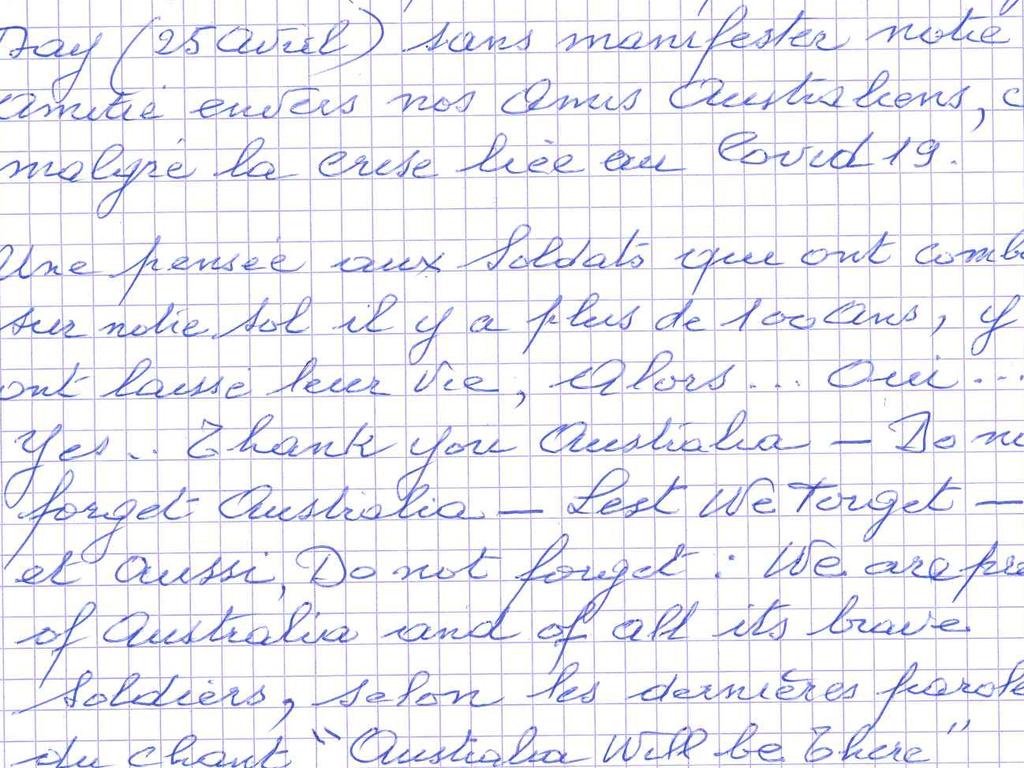 Day (25 Avril) sans manifester notre
amitié envers nos Amis Australiens,
malgré la crise liée au Covid 19.
Une pensée aux Soldats qui ont comb
sur notre sol il y a plus de 100 Ans, y
ont laissé leur vie, Alors... Oui...
Yes.. Thank you Australia - Do no
forget Australia - Lest We Forget -
et Aussi, Do not forget : We are pro
of Australia and of all its brave
Soldiers, selon les dernières parole
du chant "Australia Will be There"